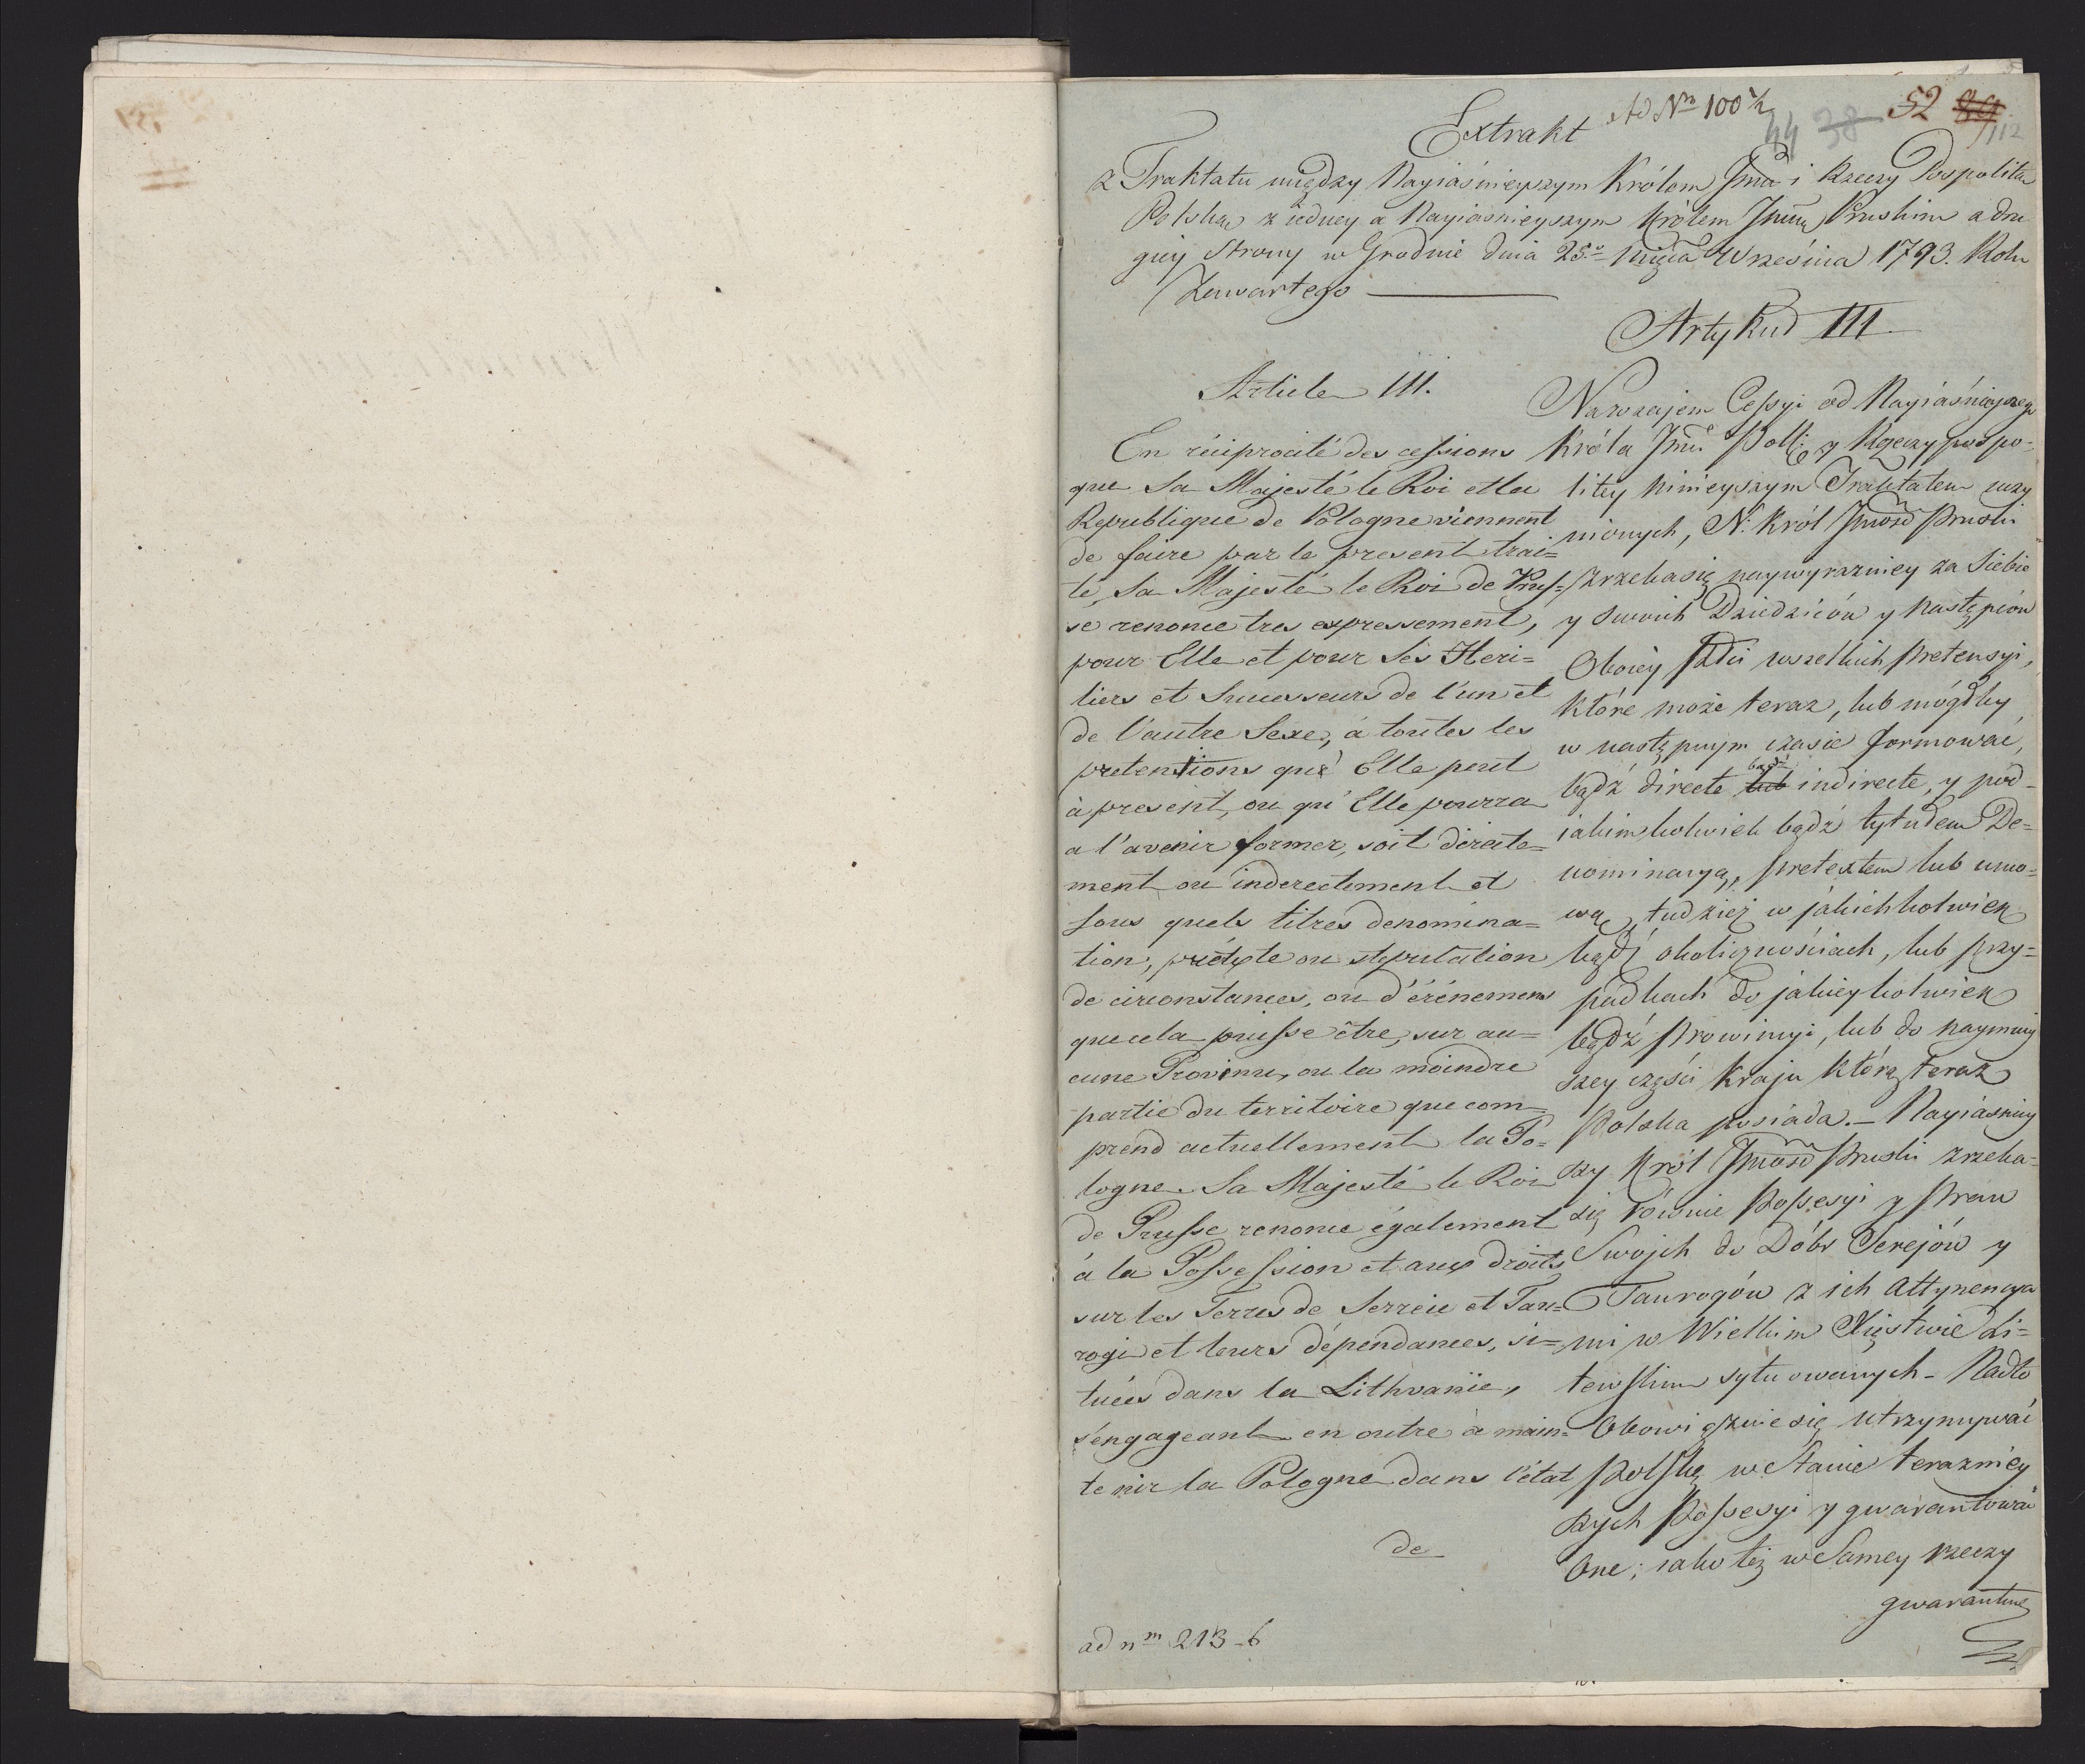 Ad Nm 100 1/2
44 38 52 89
112
Extrakt
z Traktatu między Nayiaśnieyszym Królem Jmcią i Rzeczy Pospolitą
Polską z iedney a Nayiaśnieyszym Królem Jmcią Pruskim a dru
giey Strony w Grodnie dnia 25o Mięca Września 1793. Roku
Zawartego
Article III.
En réciprocité des cessions
que Sa Majesté le Roi et la
Republique de Pologne viennent
de faire par le present trai=
té, Sa Majesté le Roi de Prus=
se renonce tres expressement,
pour Elle et pour Ses Heri=
tiers et Successeurs de l'un et
de l'autre Sexe, à toutes les
pretentions qu'Elle peut
à present, ou qu'Elle pourra
a l'avenir former, soit directe=
ment ou inderectement et
sous quels titres denomina=
tion, prétexte ou stipulation
de circonstances, ou d'événemens
que cela puisse être, sur au=
cune Province, ou la moindre
partie du territoire que com=
prend actuellement la Po=
logne. Sa Majesté le Roi
de Prusse renonce également
à la Possession et aux droits
sur les Terres de Serreie et Tau=
rogi et leurs dépendances, si=
tuées dans la Lithvanie,
s'engageant en outre à main=
tenir la Pologne dans l'état
de
ad nm 213-6
Artykuł III
Nawzajem Cessyi od Nayiaśnieyszego
Króla Jmci Polł: y Rzeczypospo=
litey ninieyszym Traktatem uczy
nionych, N. Król Jmość Pruski
zrzeka się naywyrazniey za Siebie
y Swoich Dziedziców y Następców
Oboiey Płci wszelkich pretensyi,
które może teraz, lub mógłby
w następnym czasie formować,
bądź directe lub bądź indirecte, y pod
iakimkolwiek bądź tytułem De=
nominacyą, pretextem lub umo=
wą, tudzież w jakichkolwiek
bądź okolicznościach, lub przy=
padkach do jakieykolwiek
bądź prowincyi, lub do naymniey
szey części Kraju którą teraz
Polska posiada. - Nayiaśniey
szy Król Jmość Pruski zrzeka=
się równie Possesyi y Praw
Swojch do Dóbr Serejów y
Taurogów z ich attynencya
mi w Wielkim Xięstwie Li=
tewskim sytuowanych - Nadto
Obowiązuie się utrzymywać
Polskę w Stanie terazniey
szych Possesyi y gwarantować
One; iako też w Samey rzeczy
gwarantuie